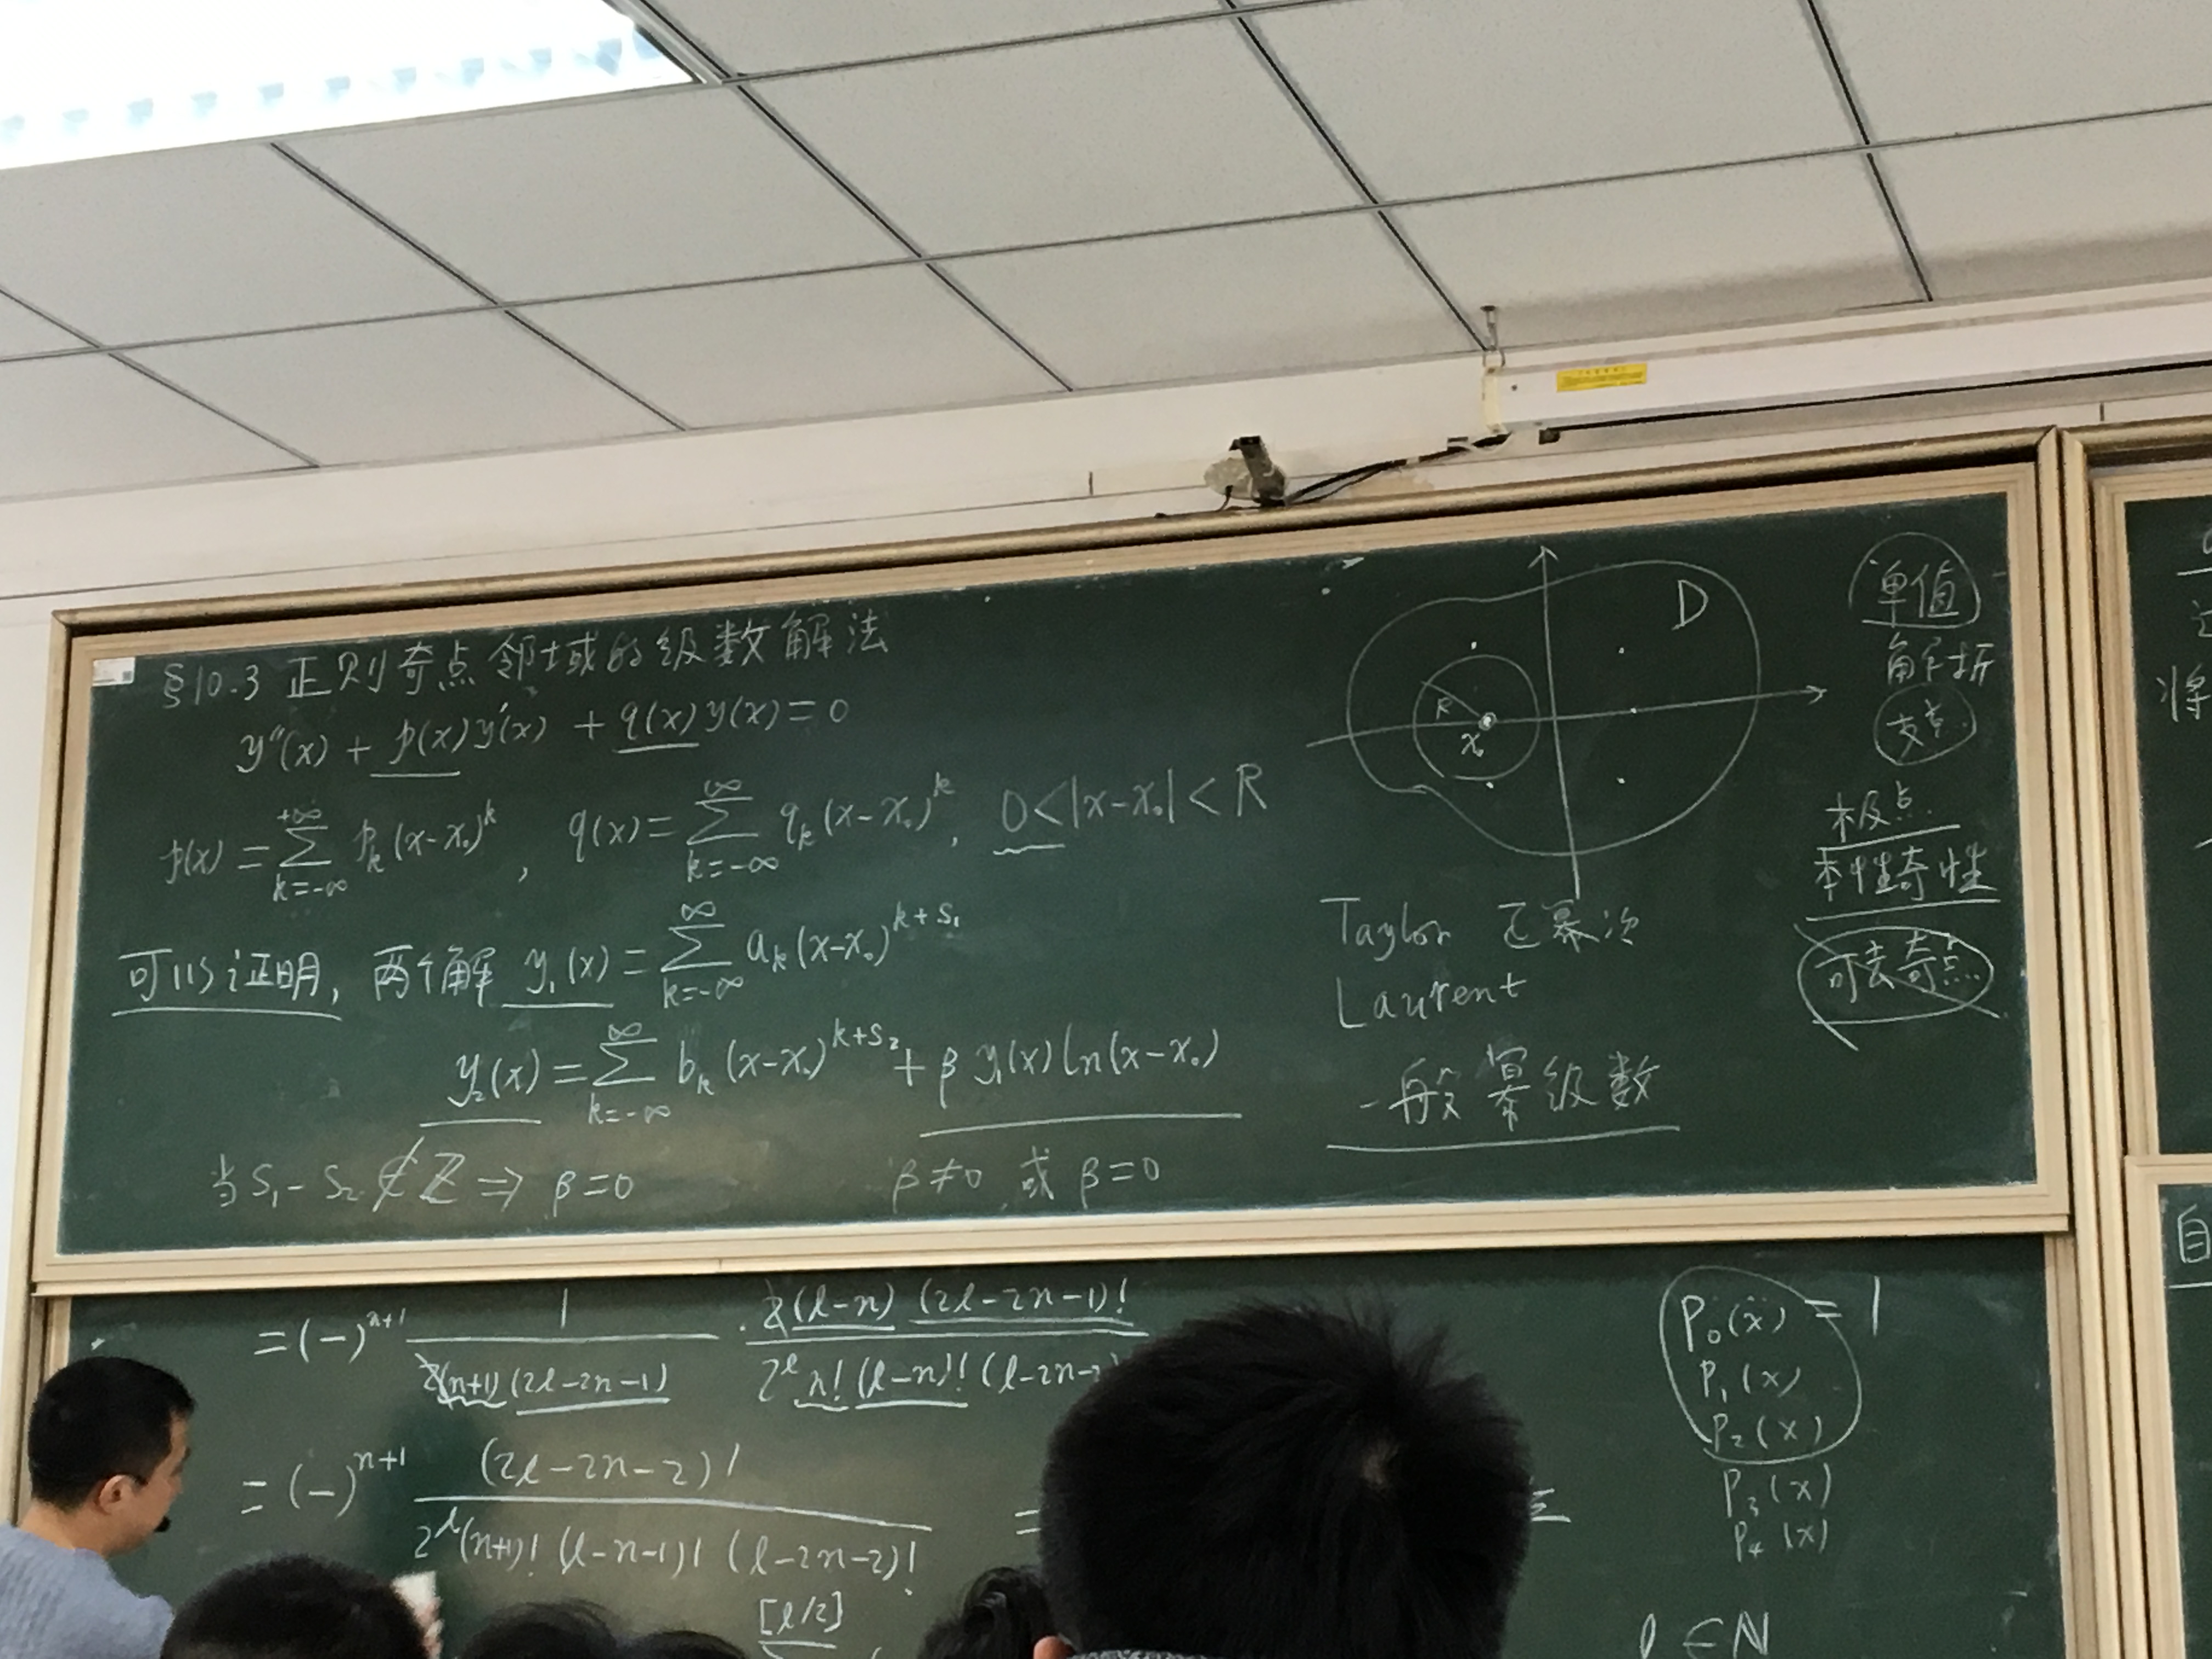 §10.3 正则奇点邻域的级数解法
y''(x) + p(x)y'(x) + q(x)y(x) = 0
p(x) = \sum_{k=-∞}^{+∞} p_k (x-x_0)^k , q(x) = \sum_{k=-∞}^{∞} q_k (x-x_0)^k , 0<|x-x_0|<R
可以证明, 两个解 y_1(x) = \sum_{k=-∞}^{∞} a_k (x-x_0)^{k+s_1}
y_2(x) = \sum_{k=-∞}^{∞} b_k (x-x_0)^{k+s_2} + β y_1(x) ln(x-x_0)
当 s_1 - s_2 ∉ Z ⇒ β=0
β≠0 或 β=0
D
R
x_0
Taylor 正幂次
Laurent
一般幂级数
单值
解析
支点
极点
本性奇性
可去奇点
= (-)^{n+1} \frac{1}{2(n+1)(2l-2n-1)} · \frac{2(l-n)(2l-2n-1)!}{2^l n! (l-n)! (l-2n-
= (-)^{n+1} \frac{(2l-2n-2)!}{2^l (n+1)! (l-n-1)! (l-2n-2)!} =
[l/2]
P_0(x) = 1
P_1(x)
P_2(x)
P_3(x)
P_4(x)
l ∈ N
将
自